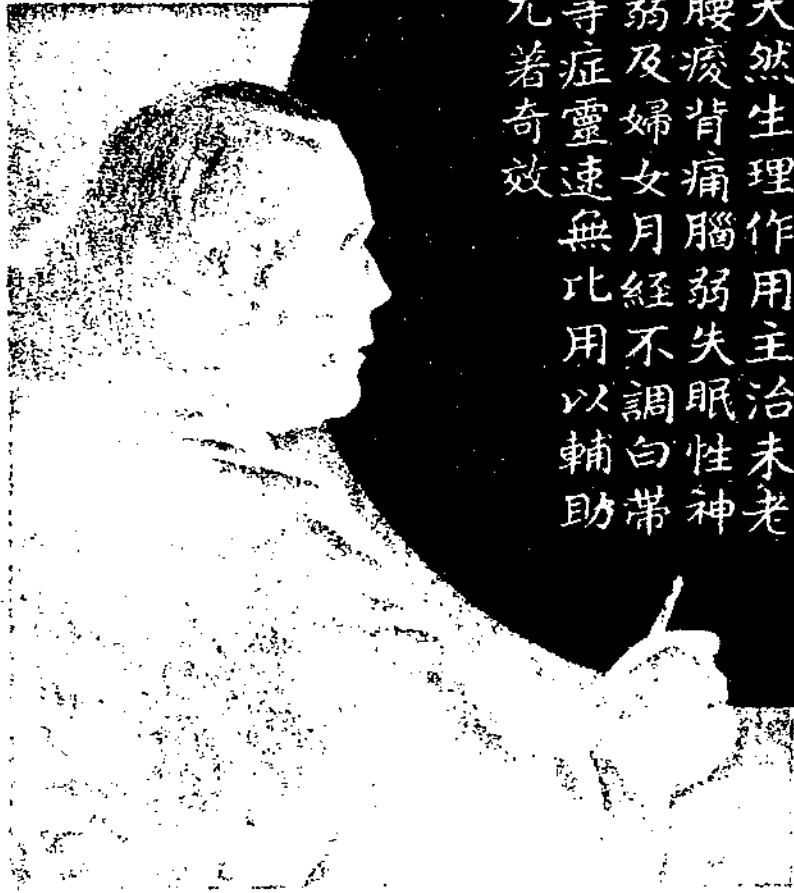 天然生理作用主治未老
腰痠背痛腦弱失眠性神
弱及婦女月経不調白带
等症靈速無比用以輔助
尤著奇效